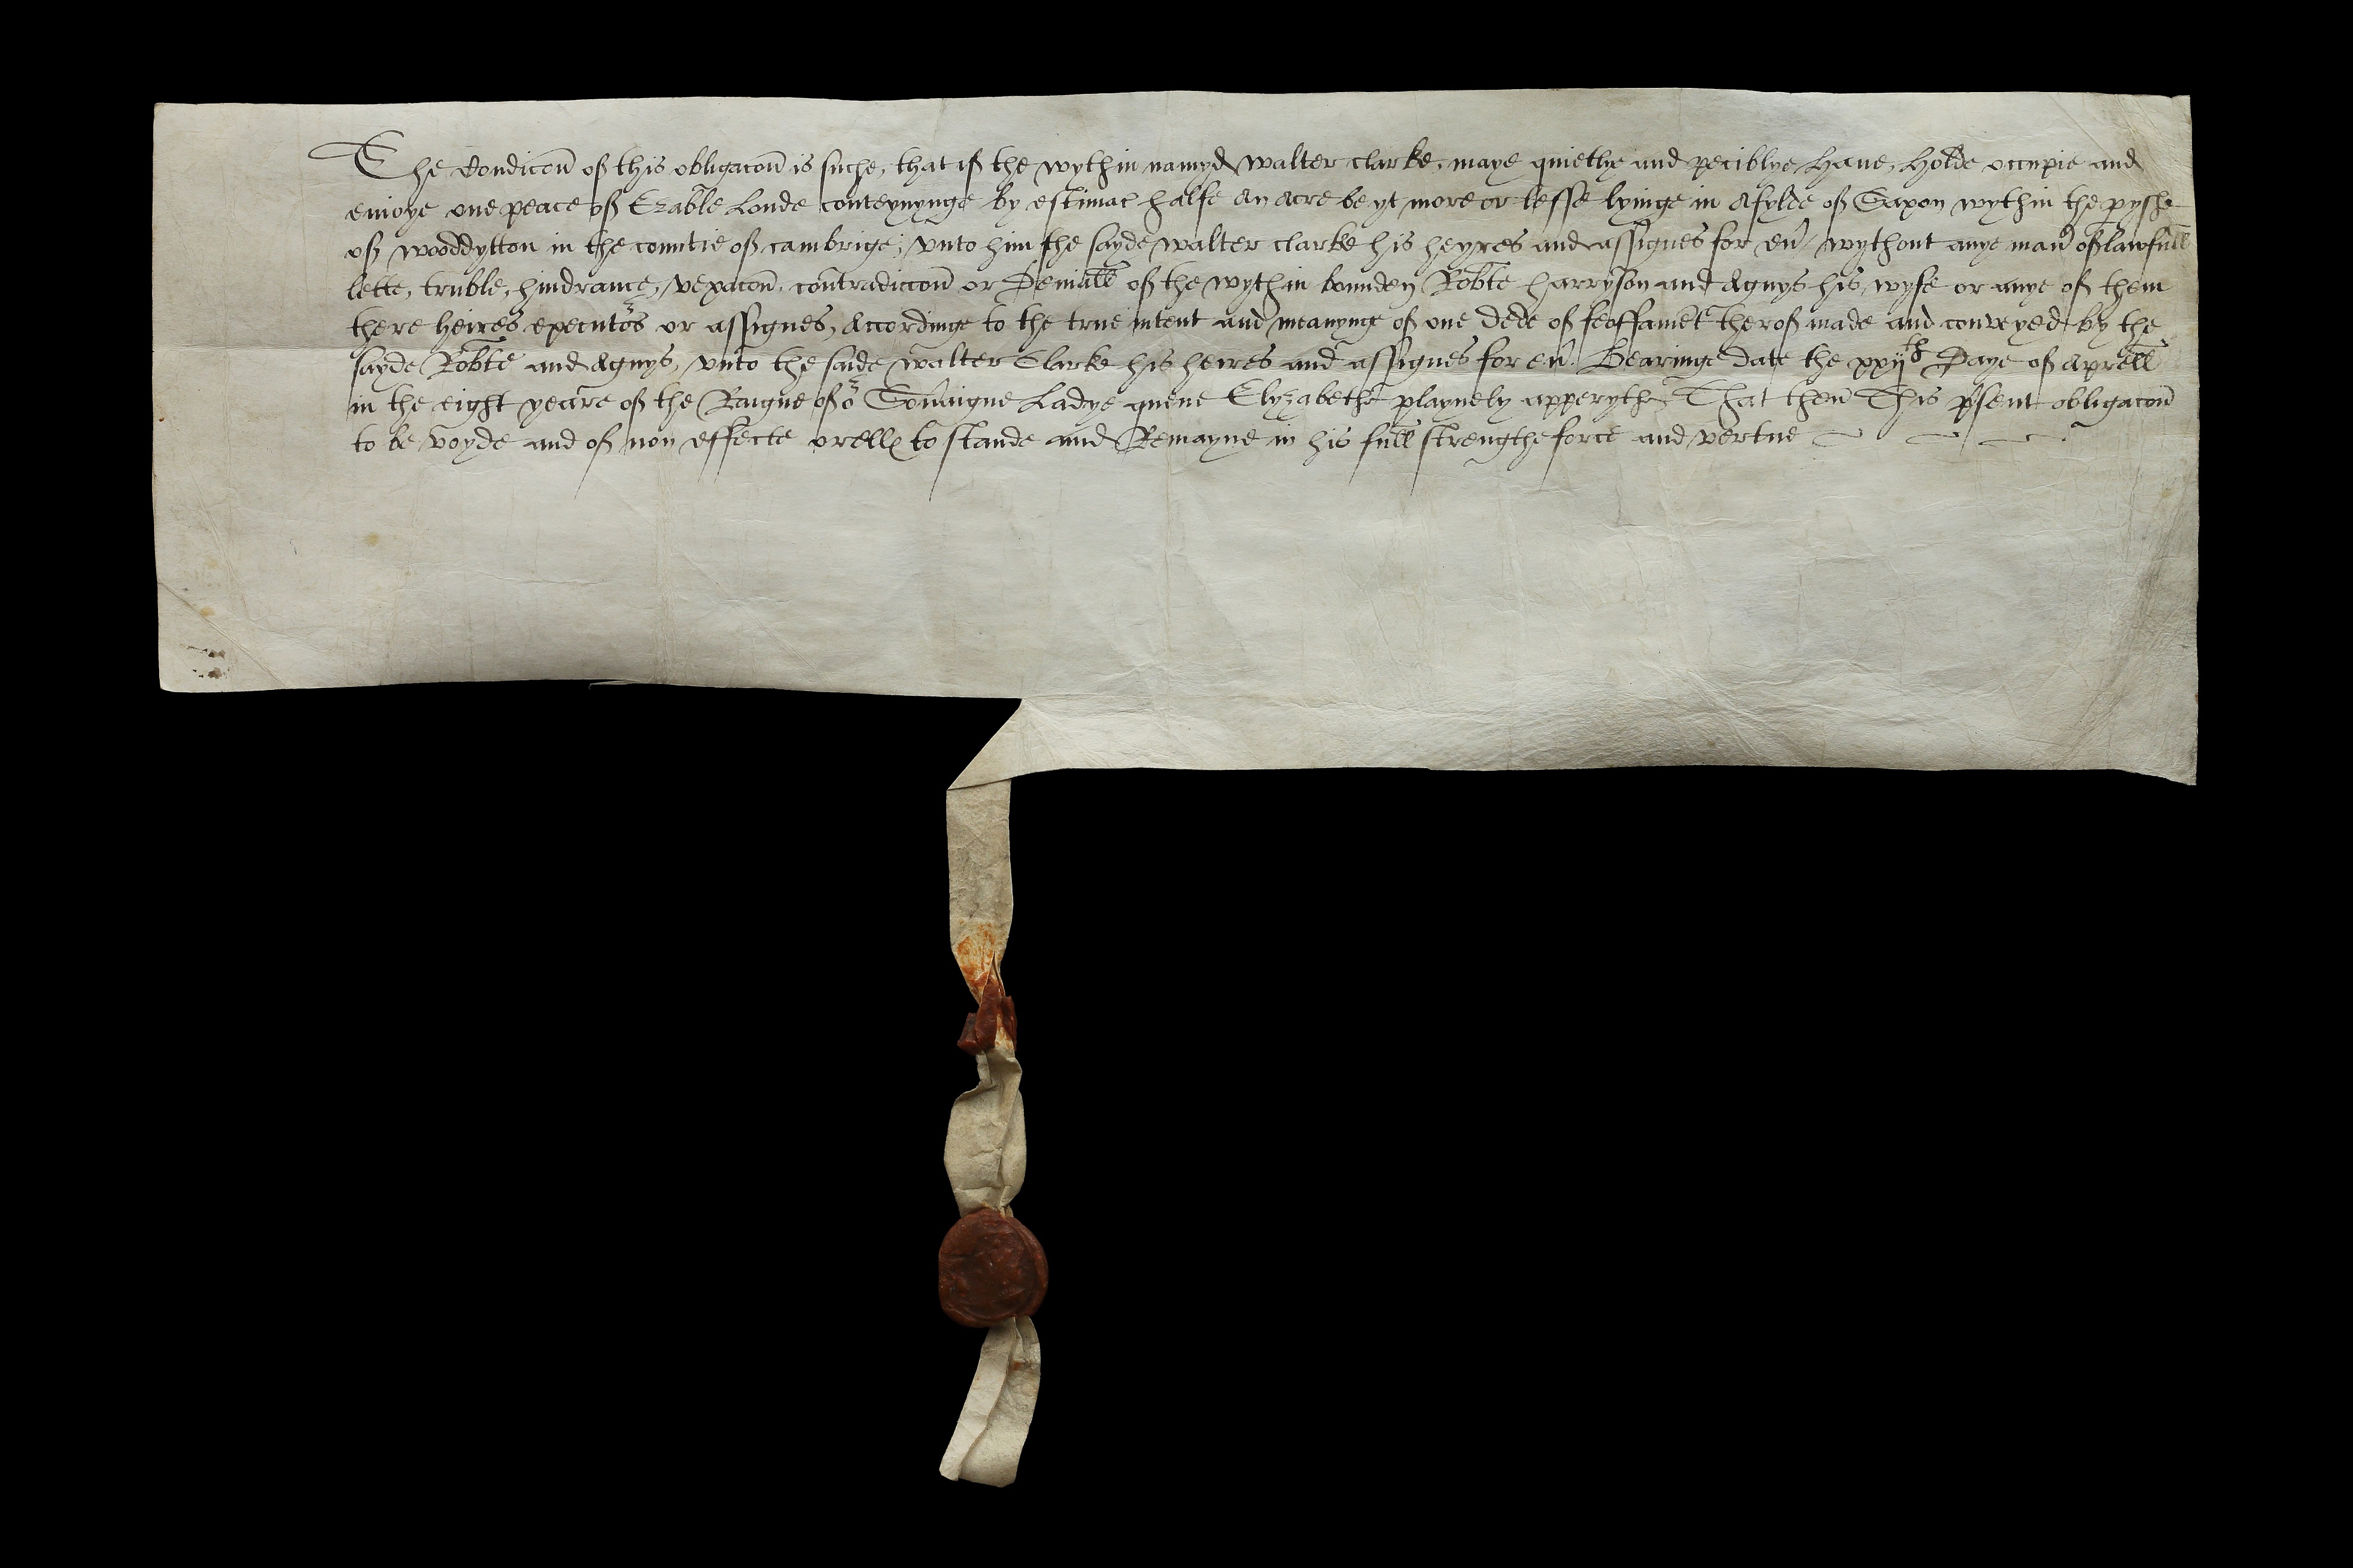 The Condicoū of this obligacoū is suche, that if the wythin namyd walter clarke, maye quietlye and peciblye Haue, Holde occupie and
enioye one peace of Erable Londe conteynynge by estimac halfe an acre be yt more or lesse lyinge in A fylde of Saxon wythin the pyshe
of wooddytton in the countie of cambrige, vnto him the sayde walter clarke his heyres and assignes for eu̅ wythout anye man̅ of lawfull
lette, truble, hindrance, vexacoū, contradiccoū or Deniall of the wythin bounden Robte harryson and Agnys his wyfe or anye of them
there heires executors or assignes, Accordinge to the true intent and meanynge of one dede of feoffamēt therof made and conveyed by the
sayde Robte and Agnys, vnto the saide walter Clarke his heires and assignes for eu̅. Bearinge date the xxijth Daye of Aprell
in the eight yeare of the Raigne of or Sou̅aigne Ladye quene Elyzabethe playnely apperythe That then This psent obligacoū
to be voyde and of non effecte orells to stande and Remayne in his full strengthe force and vertue